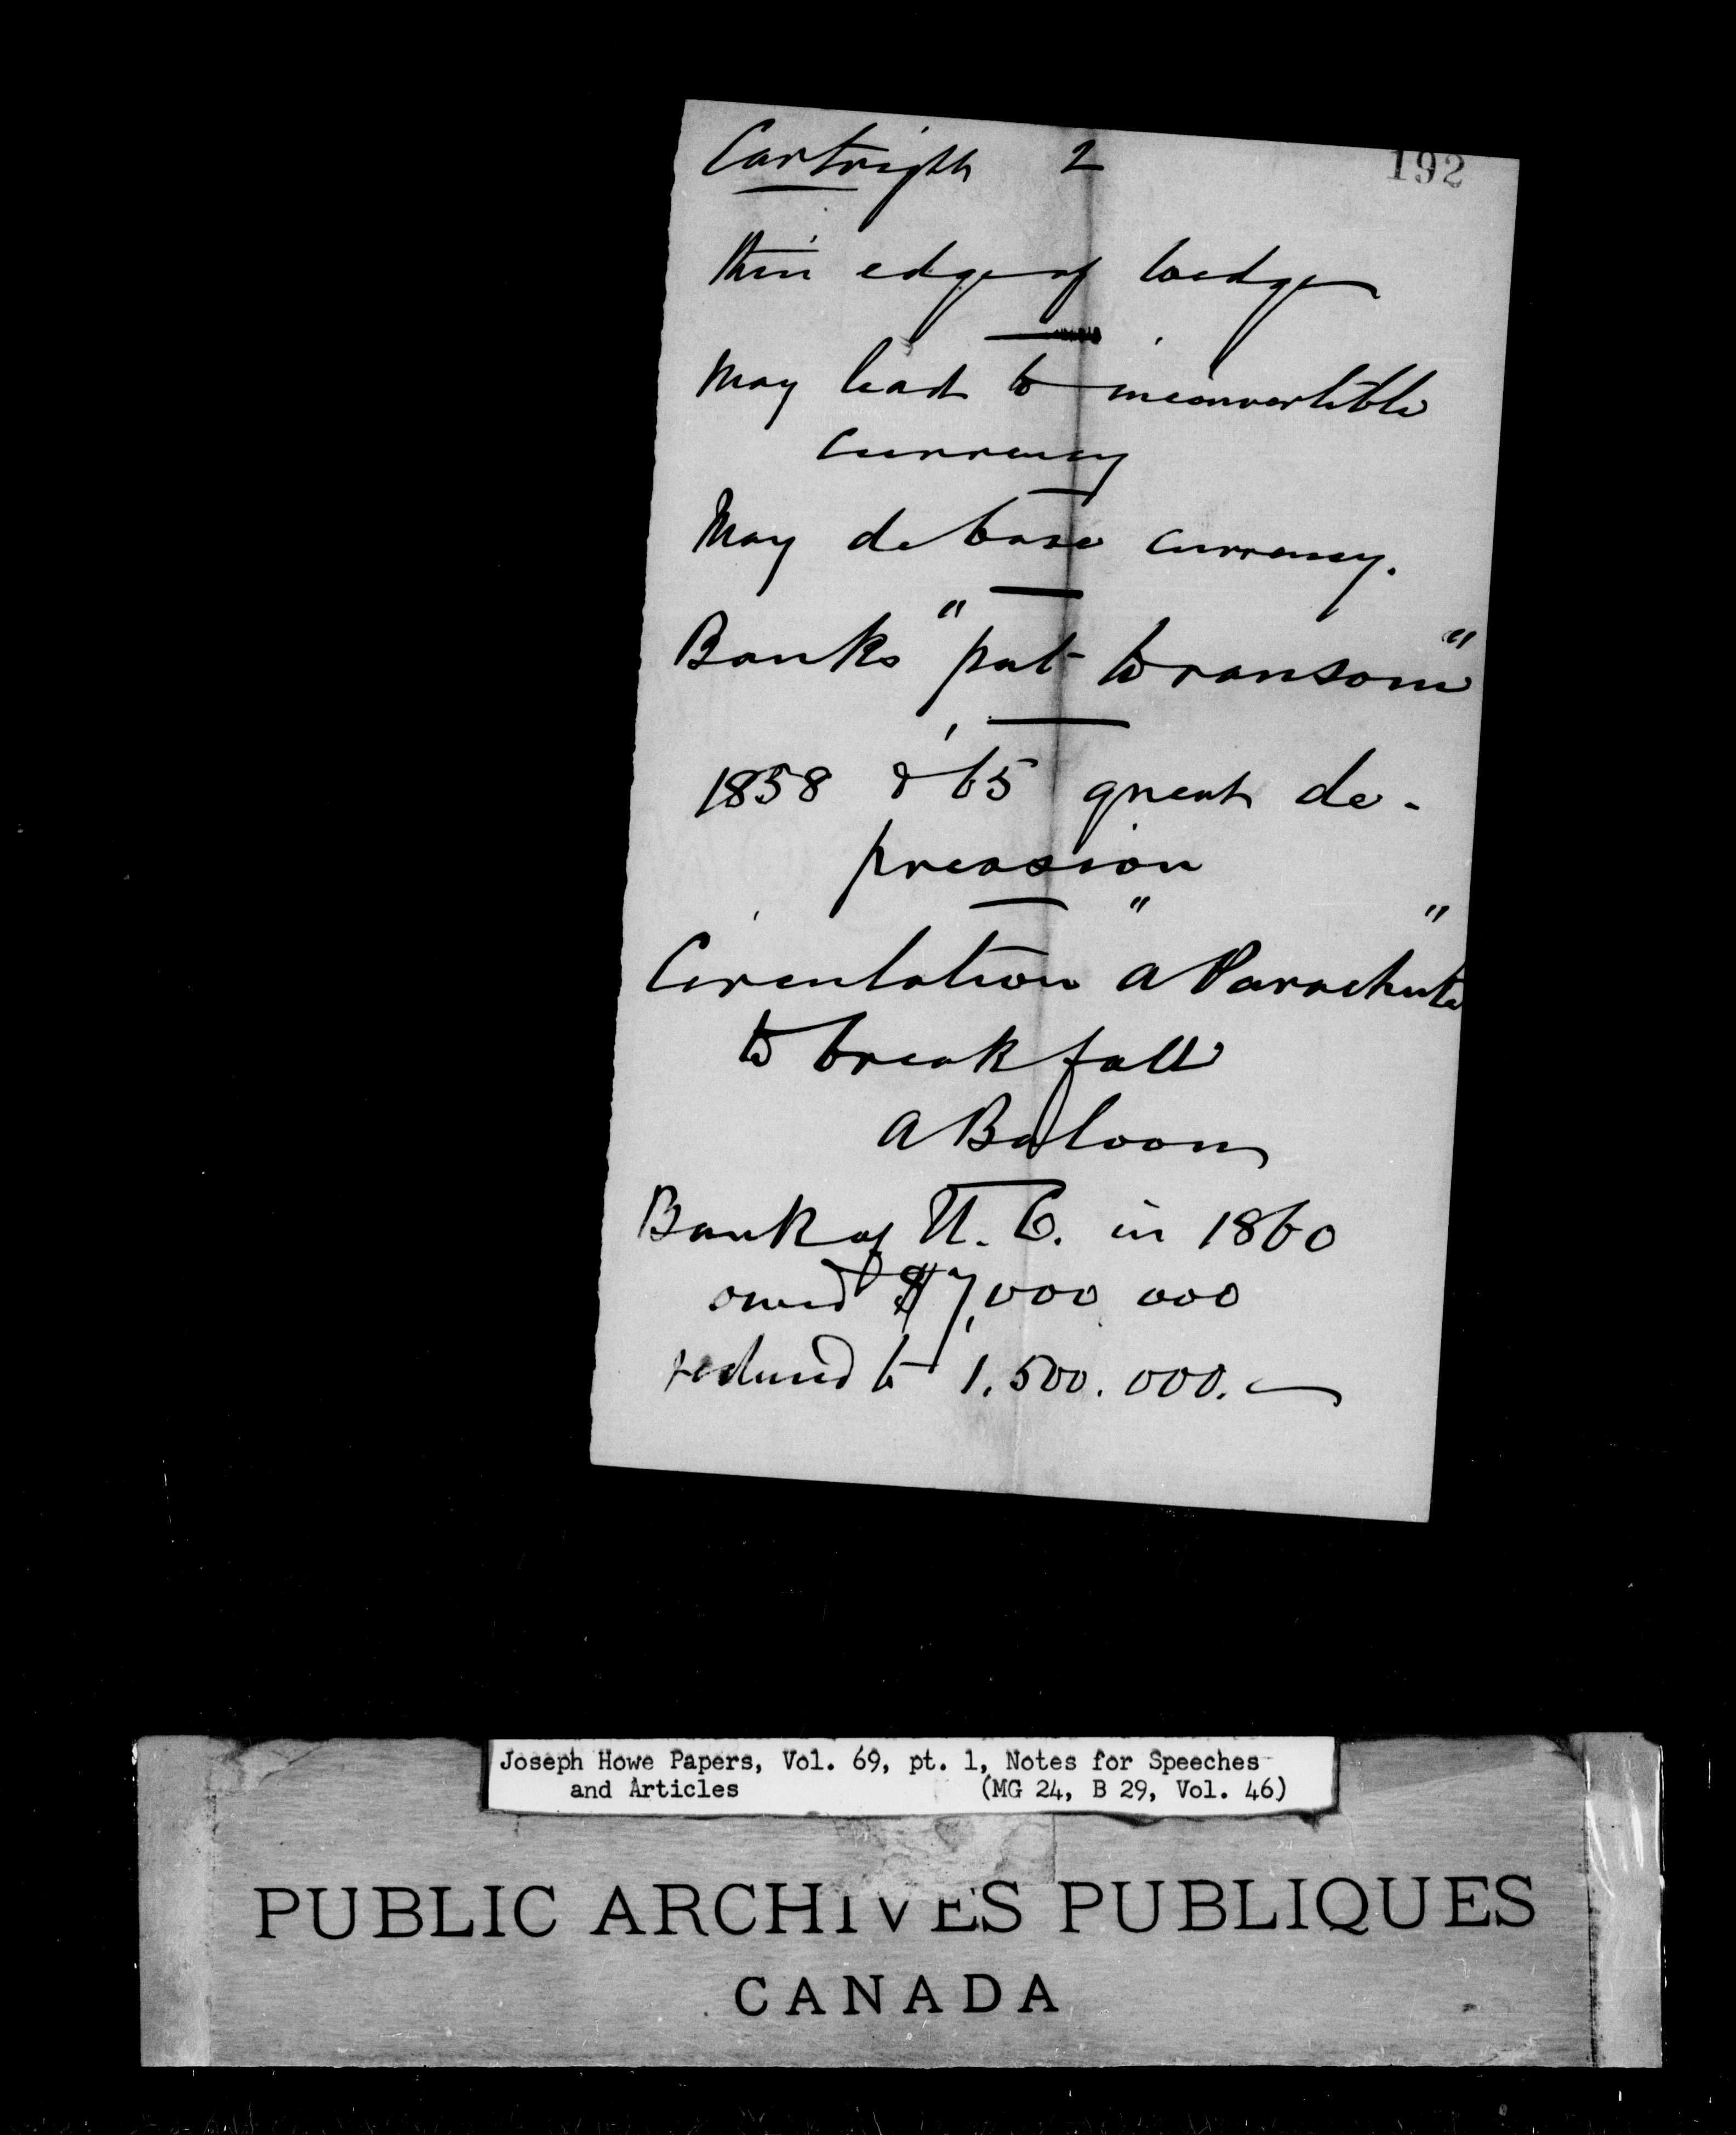 Cartrigth 2 192
thin edge of wedge
May lead to inconvertible
currency
May debase currency.
Banks "put to ransom"
1858 & 65 great de-
pression
Circulation "a Parachute"
to break fall
a Baloon
Bank of U. C. in 1860
owed $7,000 000
reduced to 1.500.000.
Joseph Howe Papers, Vol. 69, pt. 1, Notes for Speeches
and Articles (MG 24, B 29, Vol. 46)
PUBLIC ARCHIVES PUBLIQUES
CANADA